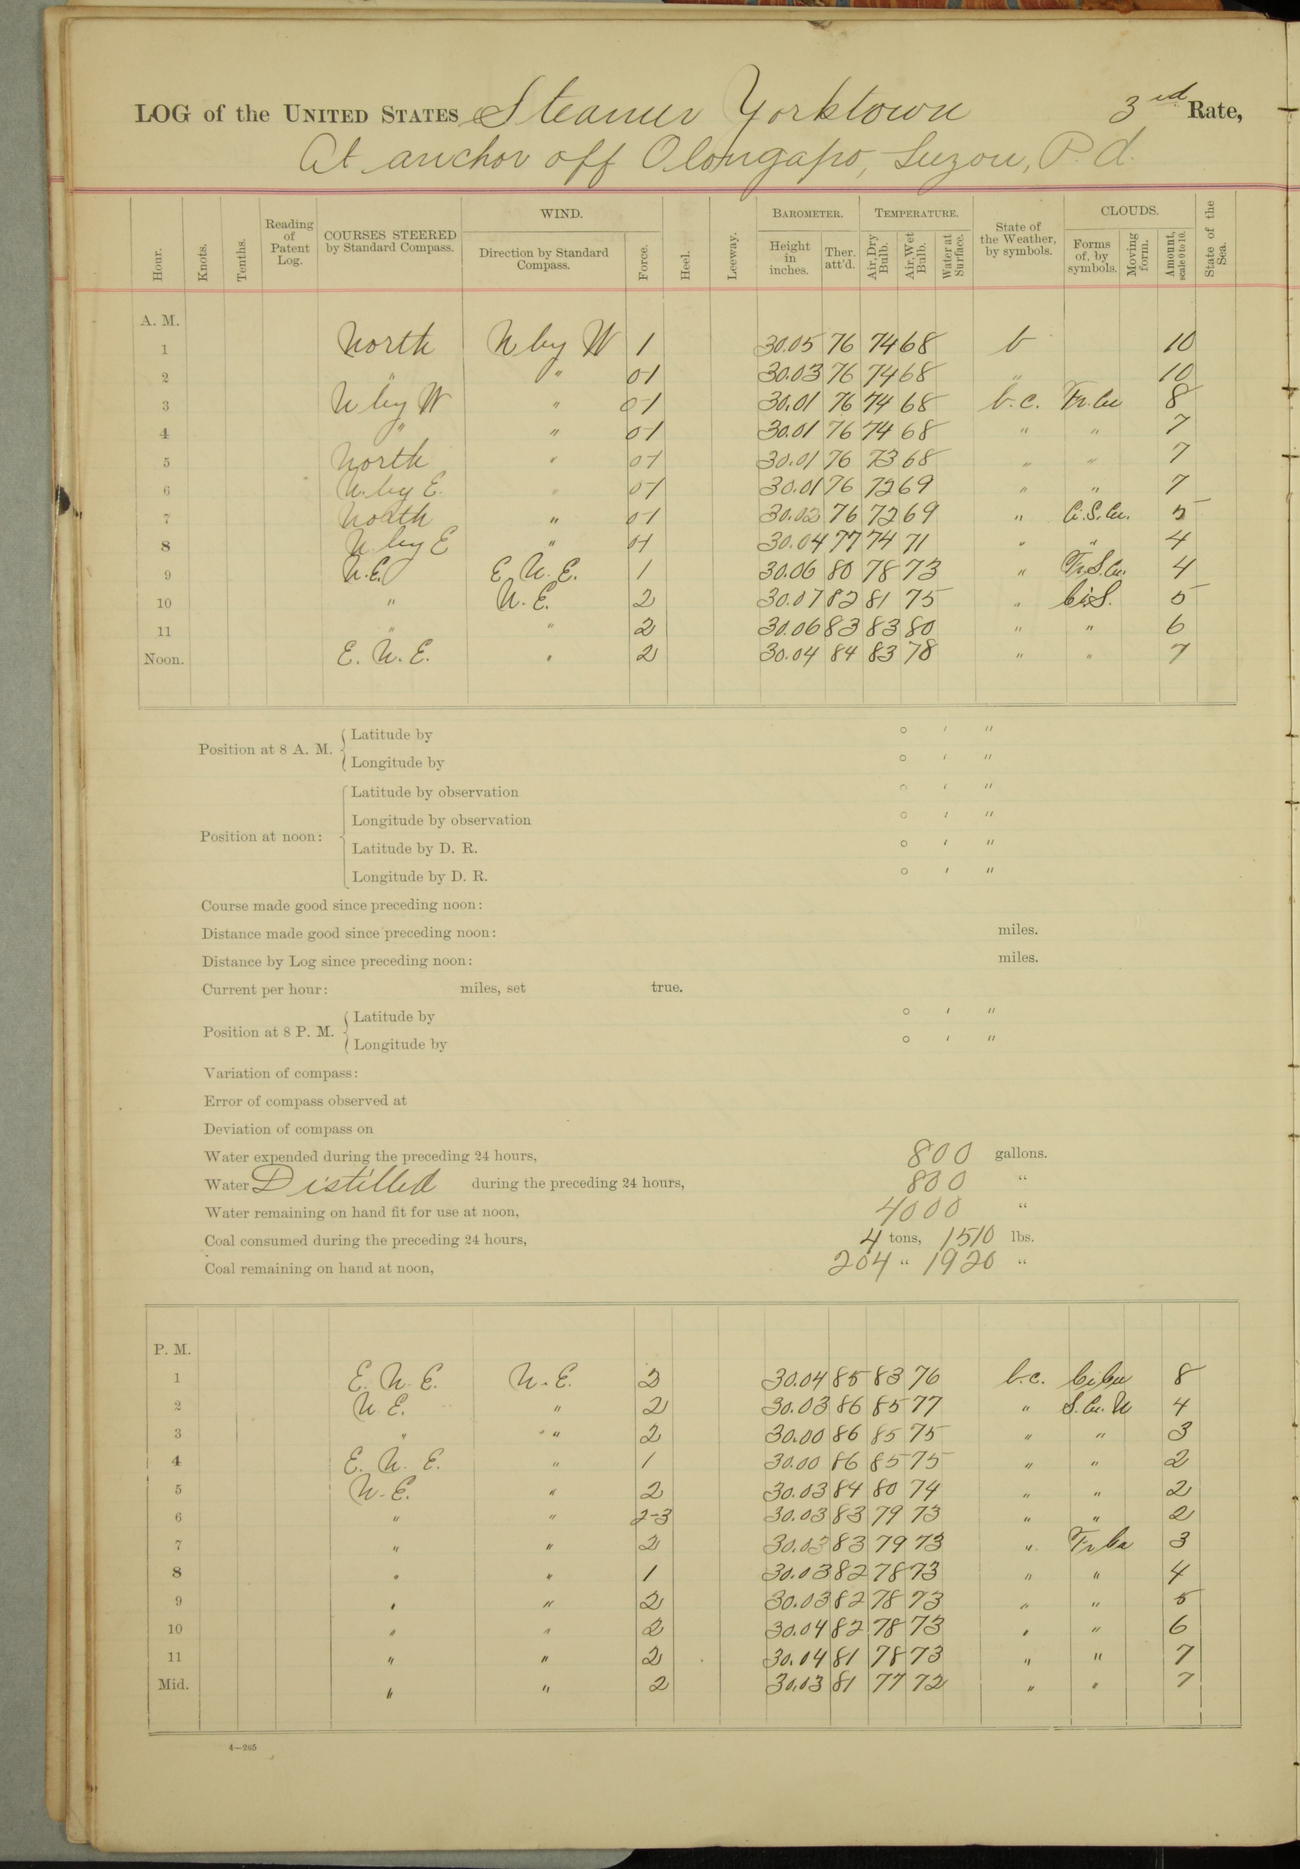 LOG of the UNITED STATES Steamer Yorktown 3rd Rate,
At anchor off Olongapo, Luzon, P. I.
Hour. Knots. Tenths. Reading of Patent Log. COURSES STEERED by Standard Compass. WIND. Direction by Standard Compass. Force. Heel. Leeway. BAROMETER. Height in inches. Ther. att'd. TEMPERATURE. Air, Dry Bulb. Air, Wet Bulb. Water at Surface. State of the Weather, by symbols. CLOUDS. Forms of, by symbols. Moving form. Amount, scale 0 to 10. State of the Sea.
A. M.
1 North N by W 1 30.05 76 74 68 b 10
2 " " 0-1 30.03 76 74 68 " 10
3 N by W " 0-1 30.01 76 74 68 b.c. Fr. Cu 8
4 " " 0-1 30.01 76 74 68 " " 7
5 North " 0-1 30.01 76 73 68 " " 7
6 N. by E. " 0-1 30.01 76 72 69 " " 7
7 North " 0-1 30.02 76 72 69 " Ci.S.Cu. 5
8 N by E " 0-1 30.04 77 74 71 " " 4
9 N.E. E. N. E. 1 30.06 80 78 73 " Fr.S.Cu. 4
10 " N. E. 2 30.07 82 81 75 " Ci.S. 5
11 " " 2 30.06 83 83 80 " " 6
Noon. E. N. E. " 2 30.04 84 83 78 " " 7
Position at 8 A. M. Latitude by ° ′ ″
Longitude by ° ′ ″
Position at noon: Latitude by observation ° ′ ″
Longitude by observation ° ′ ″
Latitude by D. R. ° ′ ″
Longitude by D. R. ° ′ ″
Course made good since preceding noon:
Distance made good since preceding noon: miles.
Distance by Log since preceding noon: miles.
Current per hour: miles, set true.
Position at 8 P. M. Latitude by ° ′ ″
Longitude by ° ′ ″
Variation of compass:
Error of compass observed at
Deviation of compass on
Water expended during the preceding 24 hours, 800 gallons.
Water Distilled during the preceding 24 hours, 800 "
Water remaining on hand fit for use at noon, 4000 "
Coal consumed during the preceding 24 hours, 4 tons, 1510 lbs.
Coal remaining on hand at noon, 204 " 1920 "
P. M.
1 E. N. E. N. E. 2 30.04 85 83 76 b.c. Ci Cu 8
2 N. E. " 2 30.03 86 85 77 " S. Cu. N 4
3 " " 2 30.00 86 85 75 " " 3
4 E. N. E. " 1 30.00 86 85 75 " " 2
5 N. E. " 2 30.03 84 80 74 " " 2
6 " " 2-3 30.03 83 79 73 " " 2
7 " " 2 30.03 83 79 73 " Fr Cu 3
8 " " 1 30.03 82 78 73 " " 4
9 " " 2 30.03 82 78 73 " " 5
10 " " 2 30.04 82 78 73 " " 6
11 " " 2 30.04 81 78 73 " " 7
Mid. " " 2 30.03 81 77 72 " " 7
4—265